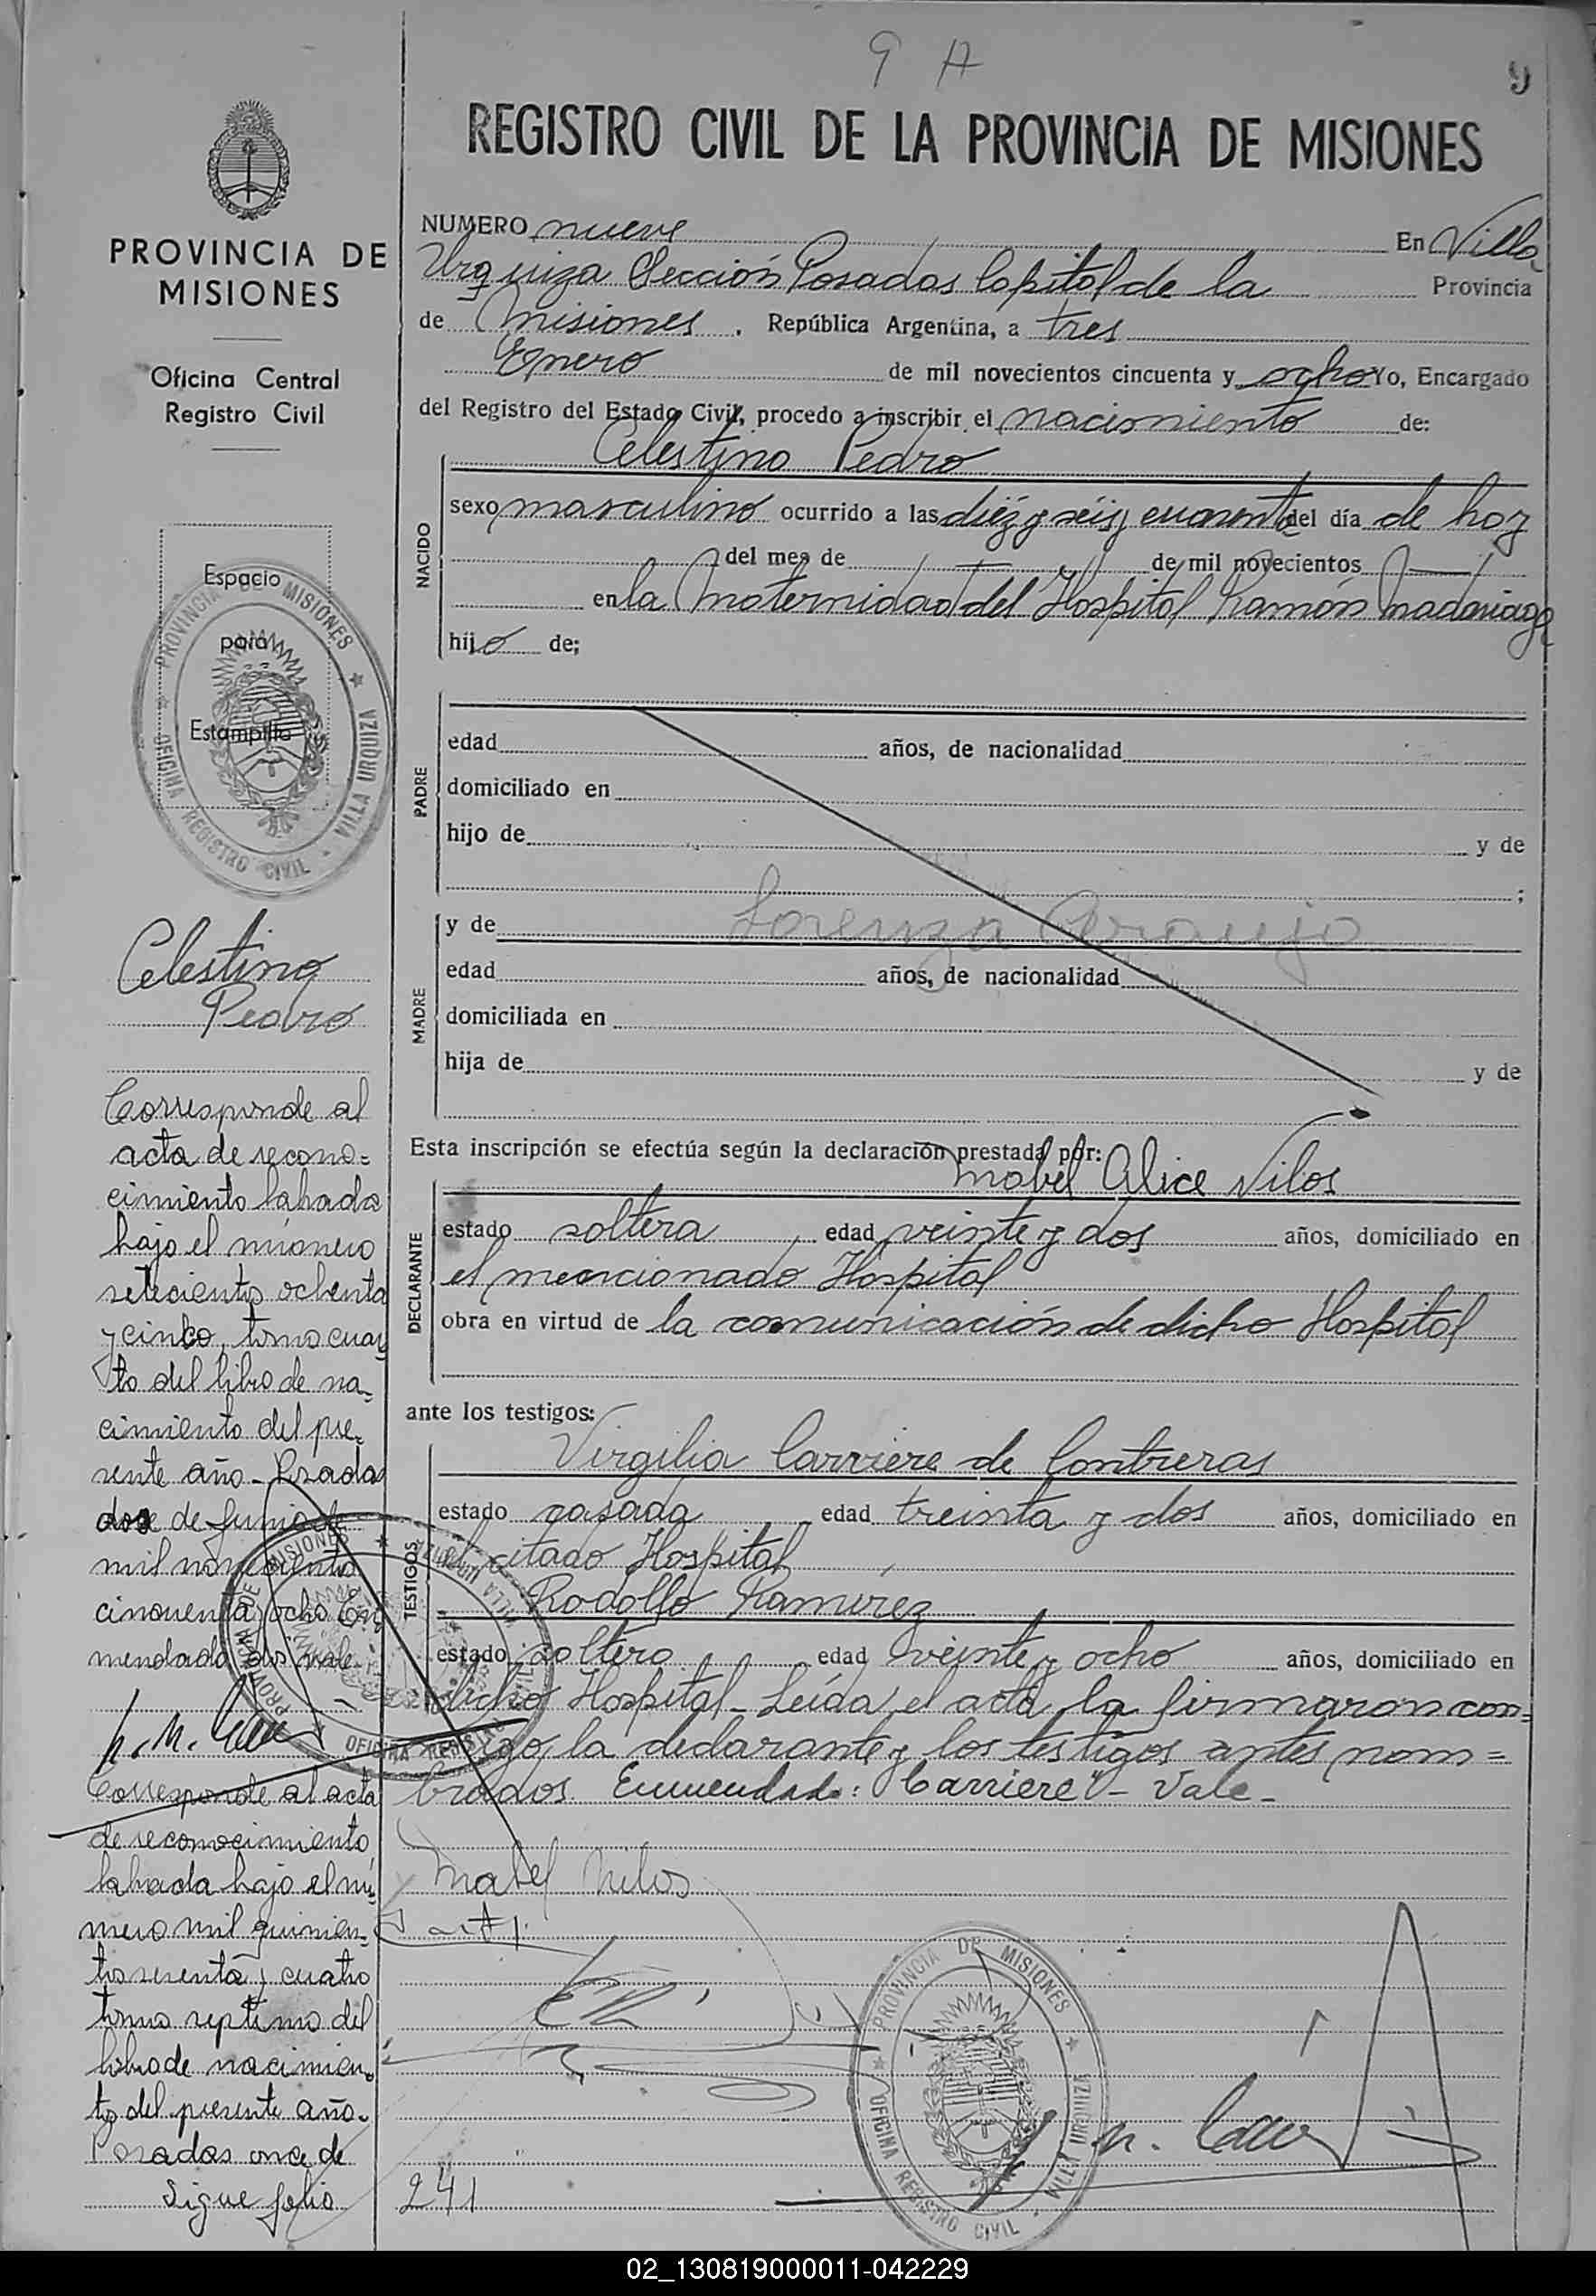 9 A
9
REGISTRO CIVIL DE LA PROVINCIA DE MISIONES
PROVINCIA DE
MISIONES
Oficina Central
Registro Civil
Espacio
para
Estampilla
PROVINCIA DE MISIONES
VILLA URQUIZA
OFICINA REGISTRO CIVIL
NUMERO nueve En Villa
Urquiza Sección Posadas Capital de la Provincia
de Misiones . República Argentina, a tres
Enero de mil novecientos cincuenta y ocho Yo, Encargado
del Registro del Estado Civil, procedo a inscribir el nacimiento de:
Celestino Pedro
NACIDO
sexo masculino ocurrido a las diez y seis y cuarenta del día de hoy
del mes de de mil novecientos
en la Maternidad del Hospital Ramón Madariaga
hijo de;
PADRE
edad años, de nacionalidad
domiciliado en
hijo de y de
;
MADRE
y de Lorenza Araujo
edad años, de nacionalidad
domiciliada en
hija de y de
Esta inscripción se efectúa según la declaración prestada por:
Mabel Alice Nilos
DECLARANTE
estado soltera , edad veinte y dos años, domiciliado en
el mencionado Hospital
obra en virtud de la comunicación de dicho Hospital
ante los testigos:
Virgilia Carriere de Contreras
TESTIGOS
estado casada edad treinta y dos años, domiciliado en
el citado Hospital
Rodolfo Ramírez
estado soltero edad veinte y ocho años, domiciliado en
dicho Hospital - Leída el acta, la firmaron con=
migo, la declarante y los testigos antes nom=
brados. Enmendado: "Carriere" - Vale -
Mabel Nilos
PROVINCIA DE MISIONES
VILLA URQUIZA
OFICINA REGISTRO CIVIL
241
Celestino
Pedro
Corresponde al
acta de recono=
cimiento labrada
bajo el número
setecientos ochenta
y cinco, tomo cuar
to del libro de na-
cimiento del pre-
sente año - Posadas
doce de Junio de
mil novecientos
cincuenta y ocho En
mendado: dos vale.
PROVINCIA DE MISIONES
VILLA URQUIZA
OFICINA REGISTRO CIVIL
Corresponde al acta
de reconocimiento
labrada bajo el nú
mero mil quinien-
tos sesenta y cuatro
tomo septimo del
libro de nacimien-
to del presente año.
Posadas once de
Sigue folio
02_130819000011-042229